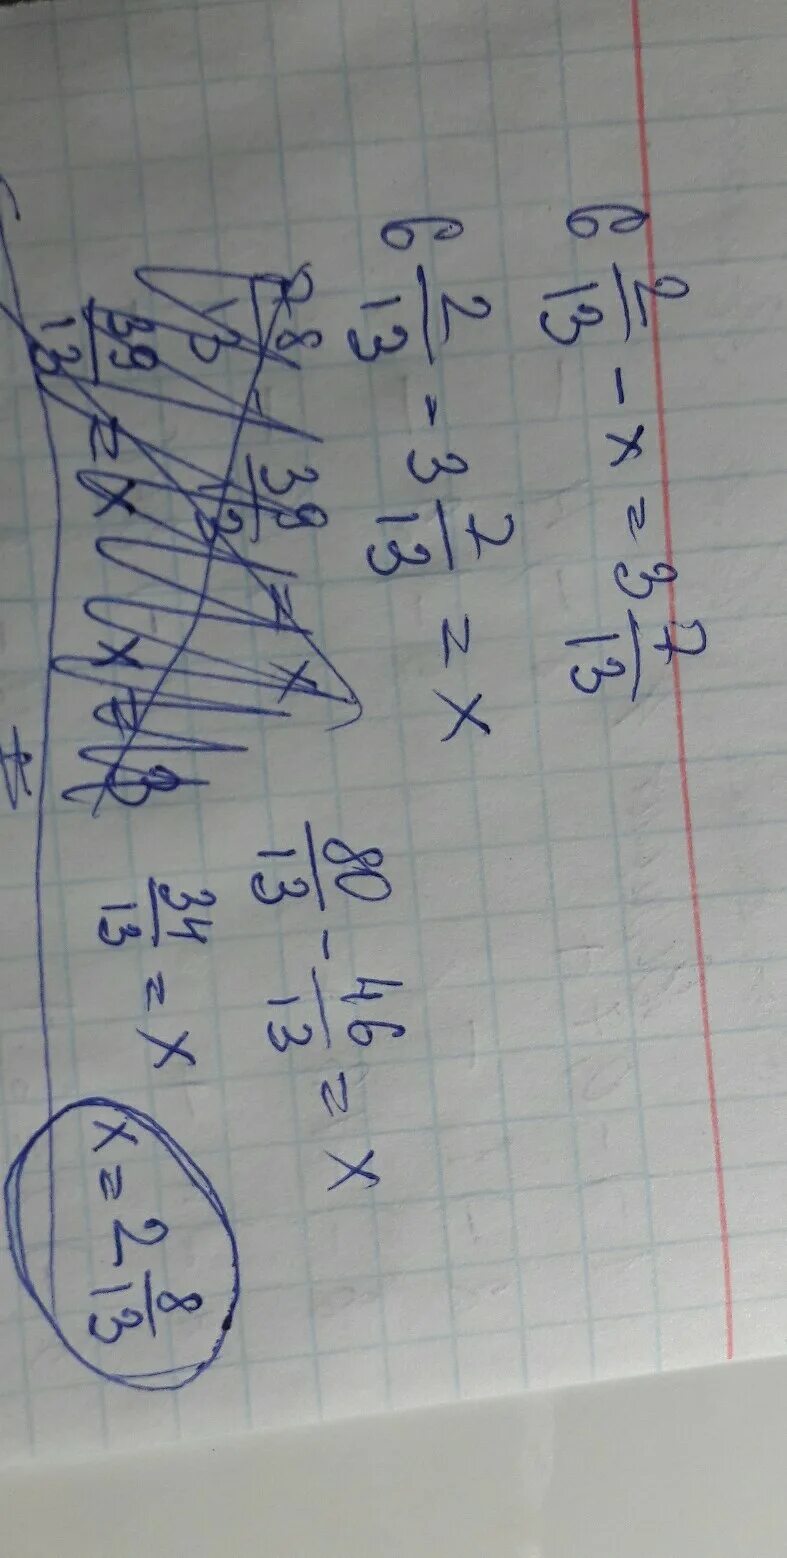 6 2/13 - x = 3 7/13
6 2/13 - 3 7/13 = x
80/13 - 46/13 = x
34/13 = x
x = 2 8/13